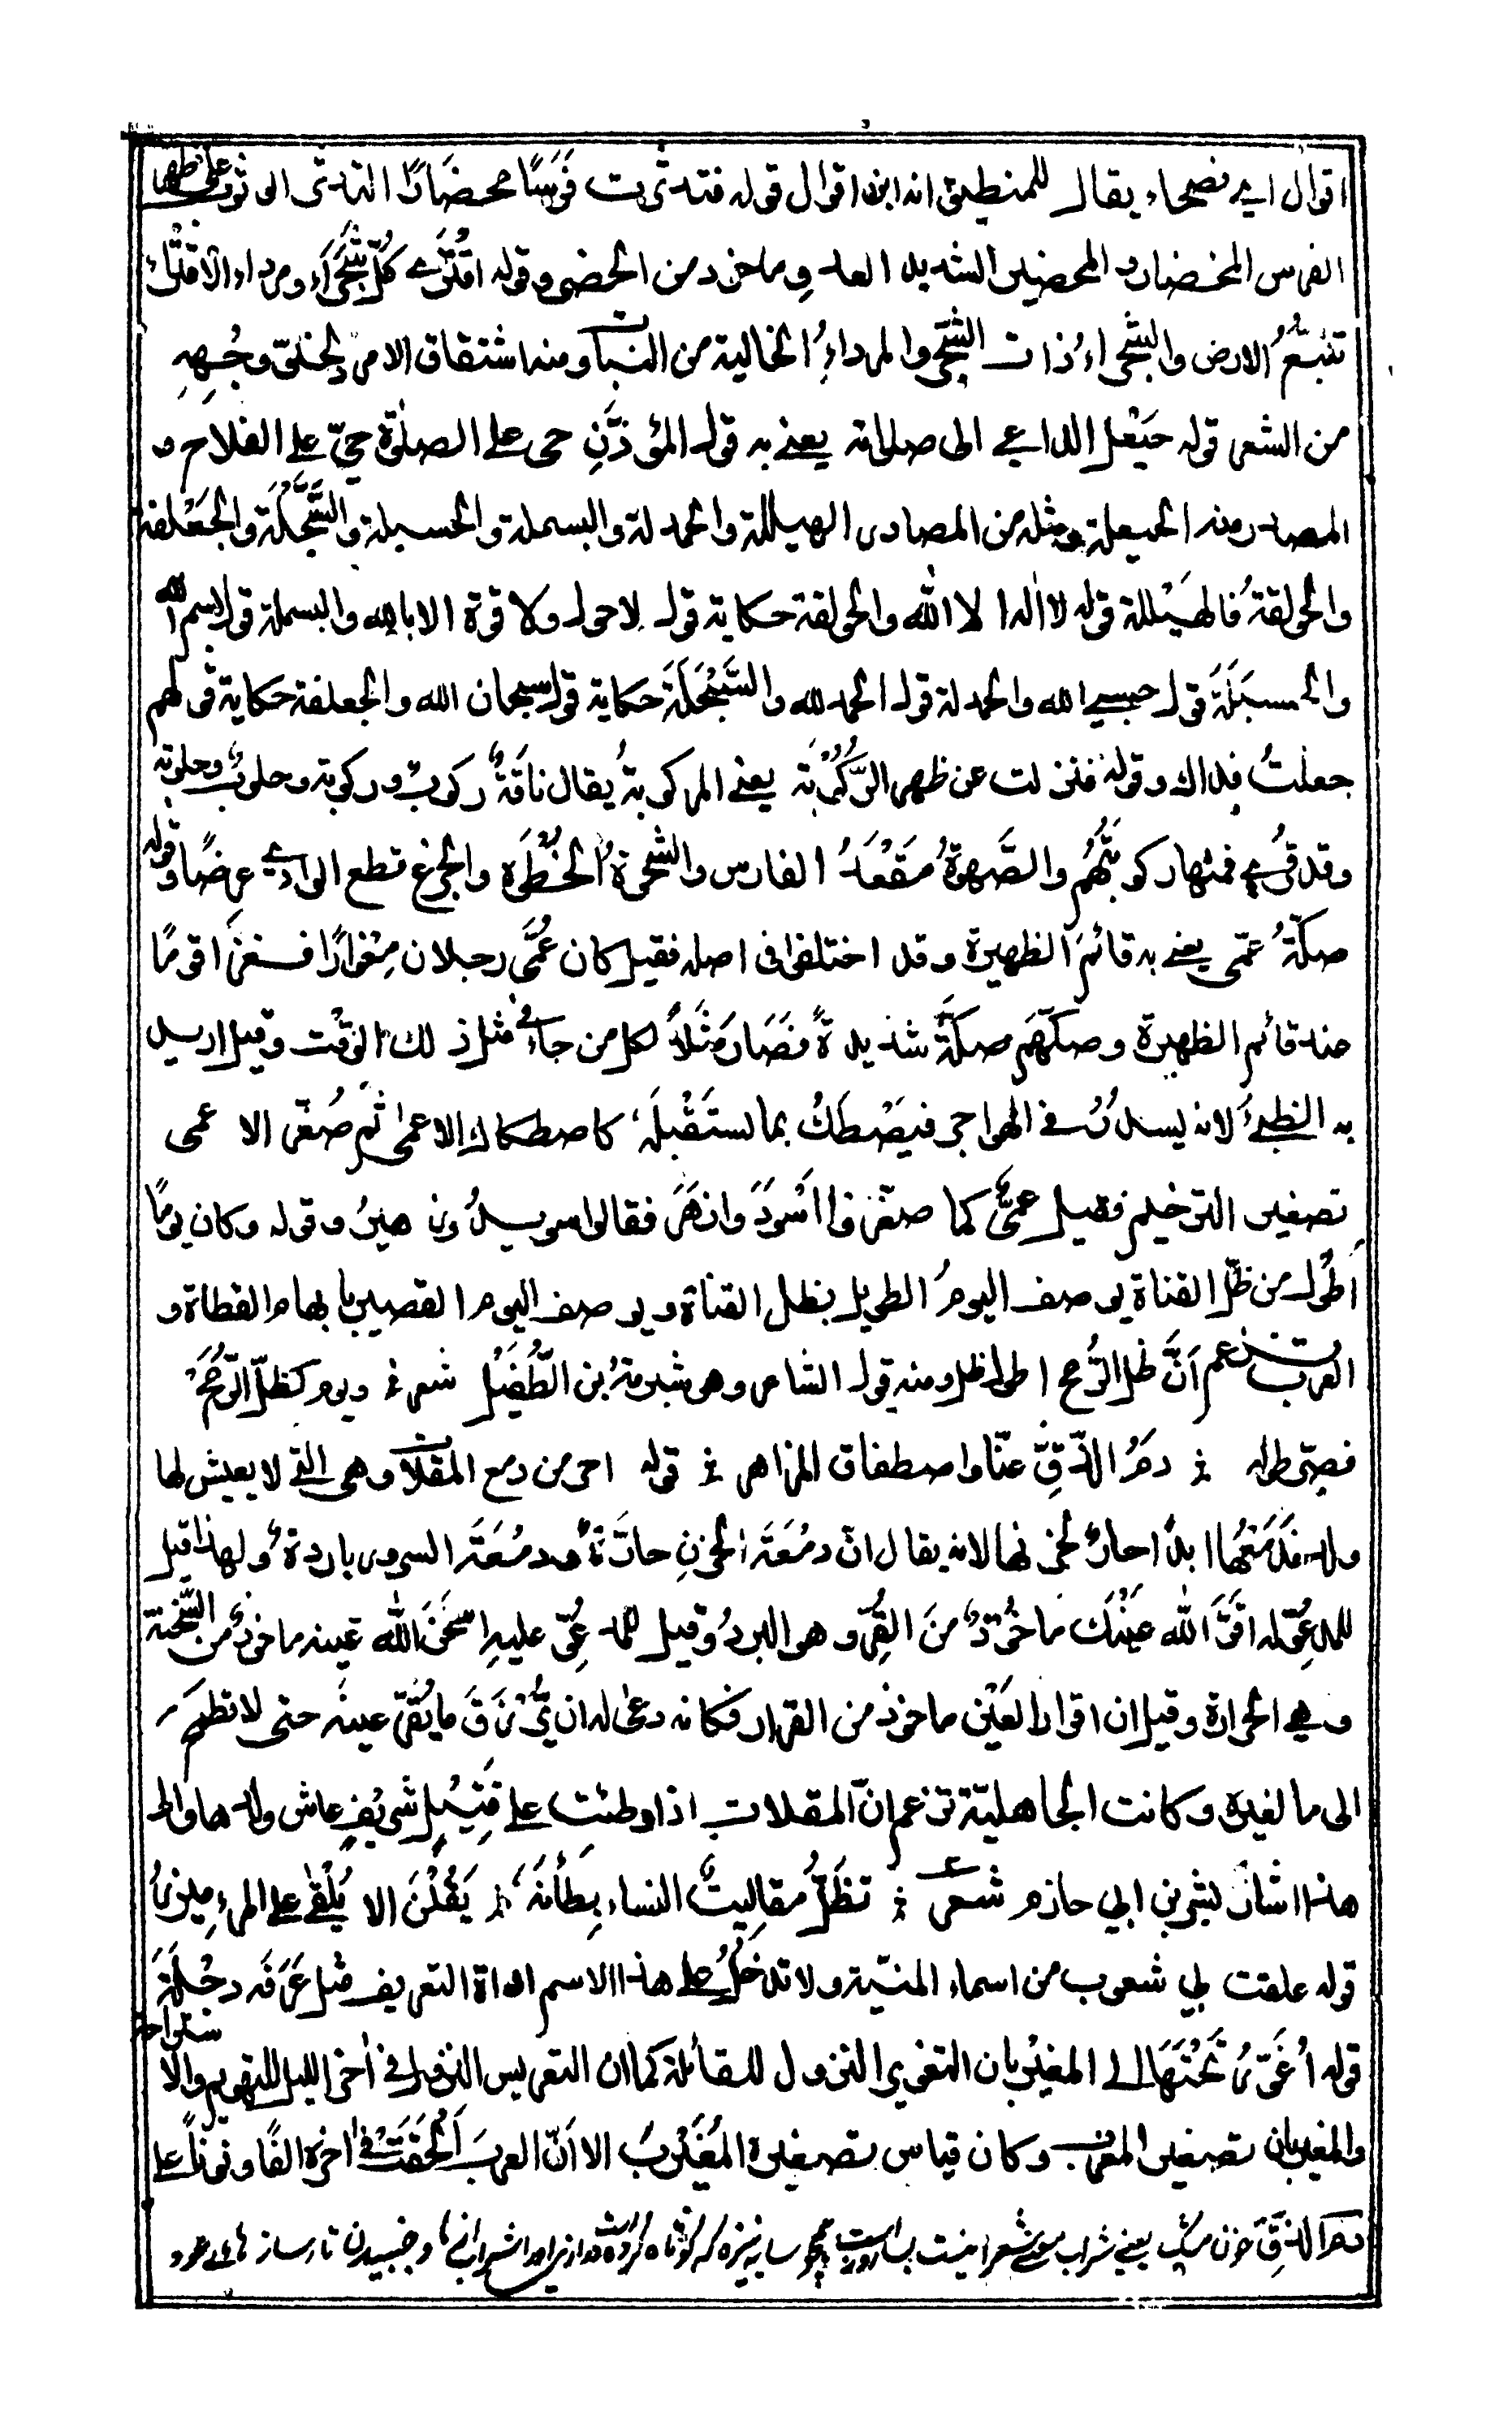 اقوال اي فصحاء يقال للمنطيق انه ابن اقوال قوله فتدثرت فَرَسًا محضَارًا التدثر الوثوب على ظهر
الفرس المحضار والمحضير الشديد العدو ماخوذ من الحضر وقوله اقتَرِي كُلَّ شَجْرَاءَ ومرداء الاقتراء
تتبّعُ الارض والشجراءُ ذات الشجر والمرداءُ الخالية من النبات ومنه اشتقاق الامرد لخلوّ وجهه
من الشعر قوله حَيْعَل الداعي الى صلاته يعني به قول المؤذّنِ حي على الصلوة حيّ على الفلاح و
المصدر منه الحيعلة ومثله من المصادر الهيللة والحمدلة والبسملة والحسبلة والسَّبْحَلَة والجَعْلفة
والحولقةُ فالهَيْللة قوله لا اله الا الله والحولقة حكاية قول لا حول ولا قوة الا بالله والبسملة قول بسم الله
والحسبَلَةَ قول حسبي الله والحمدلة قول الحمد لله والسَّبْحَلَةَ حكاية قول سبحان الله والجعلفة حكاية قولهم
جعلتُ فداك وقوله فنزلت عن ظهر الرَّكُوبَة يعني المركوبةُ يقال ناقةٌ ركوبٌ وركوبة وحلوبٌ وحلوبة
وقد قُرِئ فمنها ركوبتُهُم والصَّهوةُ مَقْعَدُ الفارس والشحوةُ الخُطْوَة والجزع قطع الوادي عرضًا وقوله
صكّةُ عمّي يعني به قائمَ الظهيرة وقد اختلفوا في اصله فقيل كان عُمَيّ رجلا مِغْوارًا فغزا قومًا
عند قائم الظهيرة وصكّهم صكّةً شديدةً فصَارَ مَثَلًا لكل من جاء في مثل ذلك الوقت وقيل اريد
به الظبيُ لانه يسدرُ في الهواجر فيَصْطَكُّ بما يستَقْبِلَه كاصطكاك الاعمٰى ثم صُغّر الاعمى
تصغير الترخيم فقيل عميٌّ كما صغّروا اَسْوَدَ وازهَرَ فقالوا سويدٌ وزهيرٌ وقوله وكان يومًا
اَطْولَ من ظلّ القناة يوصف اليومُ الطويل بظل القناة ويوصف اليوم القصير بابهام القطاة و
العرب تزعم اَنَّ ظل الرُّمح اطول ظل ومنه قول الشاعر وهو شبرمةُ بن الطُّفَيْل شعر ويوم كظلّ الرُّمْحِ
قصّر طوله دمُ الزِّقِّ عنّا واصطفاق المزاهر قوله احر من دمع المقلات وهي التي لا يعيش لها
ولد فدَمْعُها ابدًا حارٌّ لحزنها لانه يقال انّ دمْعَةَ الحزنِ حارّةٌ ودمْعَةَ السرور باردةٌ ولهذا قيل
للمدعوّ له اقرَّ الله عَيْنَك ماخوذٌ منَ القُرِّ وهو البردُ وقيل للمدعوّ عليه اسْخَنَ الله عينه ماخوذٌ من السُّخنة
وهي الحرارة وقيل ان اقرار العَيْن ماخوذ من القرار فكانه دعى له ان يُّرْزَقَ ما يُقرّ عينه حتى لا تطمح
الى ما لغيره وكانت الجاهليّة تزعم انّ المقلات اذا وطئت على قتيلٍ شريفٍ عاش ولدها والى
هذا اشار بشر بن ابي حازم شعر تظَلُّ مقاليتُ النساء يطأْنَهٗ يَقُلْنَ الا يُلْقٰى على المرءِ مِئزرُ
قوله علقت بي شعوب من اسماء المنيّة ولا تدخلُ على هذا الاسم اداة التعريف مثل عَرَفَه دجْلَةَ
قوله أُغَوِّرُ تحْتَهَا الى المغيربان التغوير النزول للقائلة كما ان التعريس النزول في آخر الليل للتهويم والاستراحة
والمغيربان تصغير المغرب وكان قياس تصغيره المُغَيْرِبُ الا اَنَّ العربَ اَلْحَقَتْ في آخره الفًا ونونًا على
دم الزِّقّ خون مشك يعني شراب معنی شعر اینست بسا روزیست همچو سایه نیزه که کوتاه کرده است درازی او را شراب ما و جنبیدن تارساز هاے عود